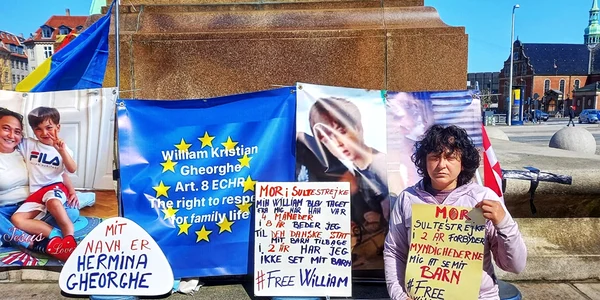 FILA
Jesus
Love
MIT
NAVN, ER
HERMINA
GHEORGHE
William Kristian
Gheorghe
Art. 8 ECHR
The right to resp
for family life
MOR i SULTESTREJKE
MIN WILLIAM BLEV TAGET
FRA MIG NÅR HAN VAR
4 MÅNEDER
8 ÅR BEDER JEG
TIL DEN DANSKE STAT
MIT BARN TILBAGE
I 2 ÅR HAR JEG
IKKE SET MIT BARN
#FREE WILLIAM
MOR
SULTESTREJKE
I 2 ÅR FORBYDER
MYNDIGHEDERNE
MIG AT SE MIT
BARN
#FREE